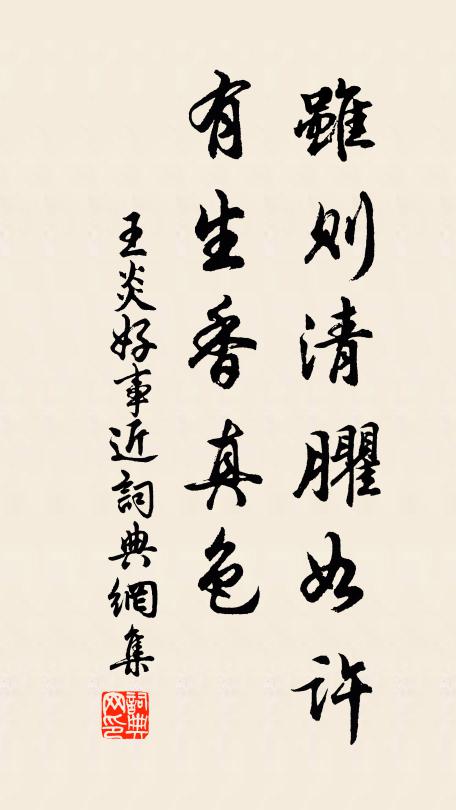 雖則清臞如許
有生香真色
王炎好事近詞典網集
詞典网印